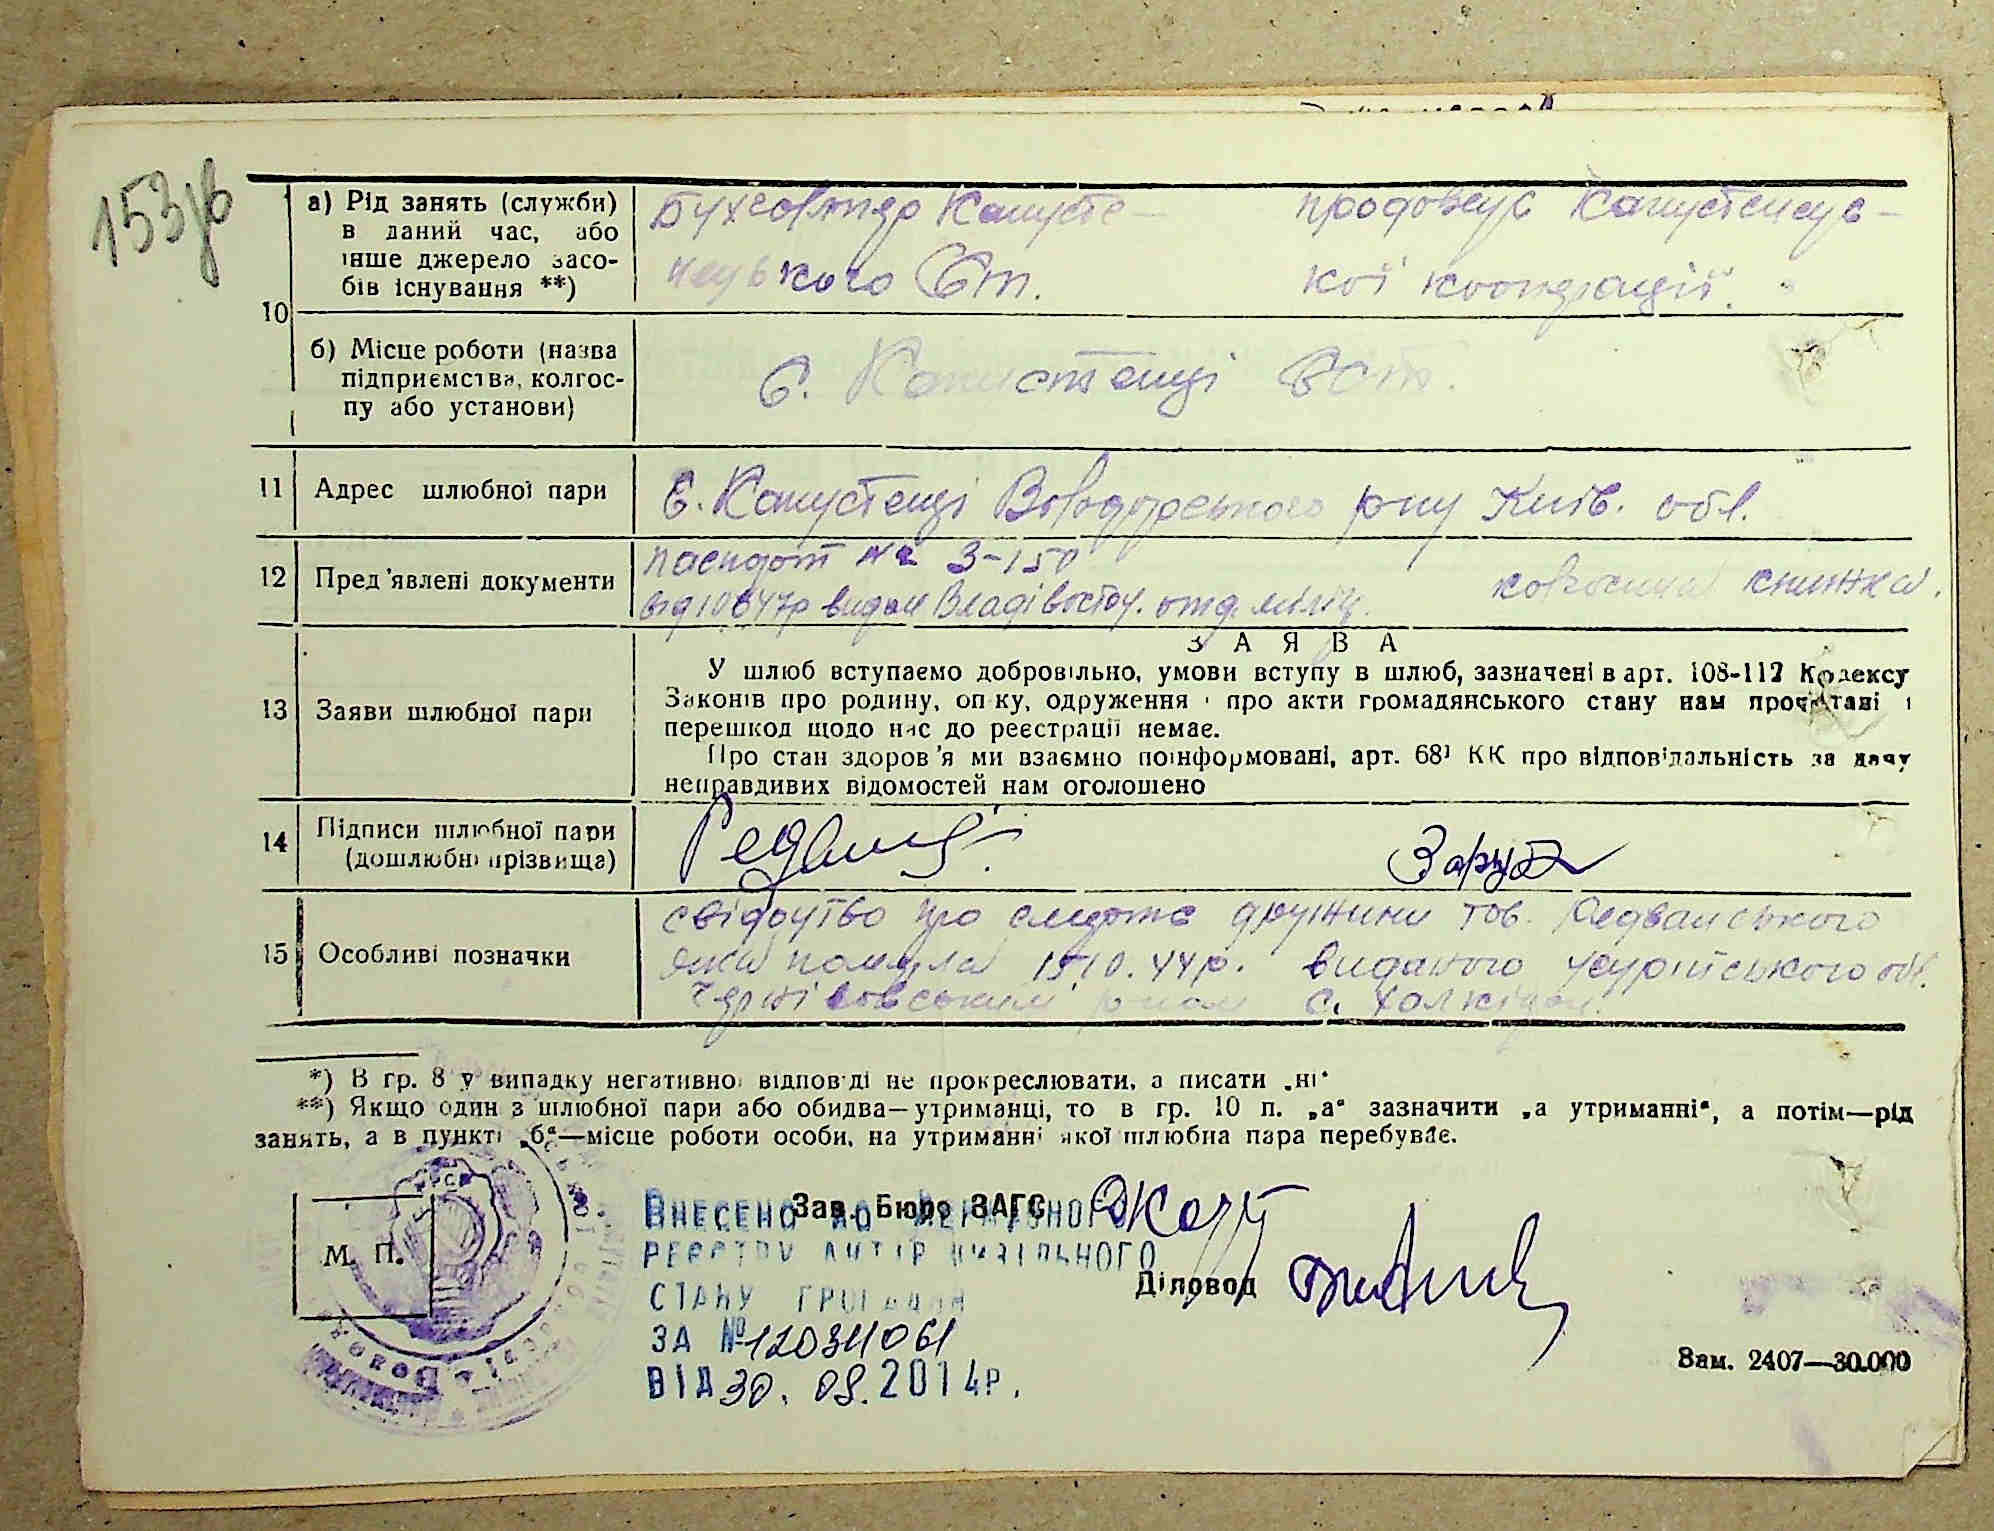 153зв
а) Рід занять (служби) в даний час, або інше джерело засобів існування **)
Бухгалтер Капусте-
нського Ст.
продовжує Капустенсь-
кої кооперації.
10
б) Місце роботи (назва підприємства, колгоспу або установи)
С. Капустенці
11 Адрес шлюбної пари
С. Капустенці Володарського р-ну Київ. обл.
12 Пред'явлені документи
паспорт № 3-150
видан Владівосток. отд. міліц.
колгоспна книжка.
З А Я В А
13 Заяви шлюбної пари
У шлюб вступаємо добровільно, умови вступу в шлюб, зазначені в арт. 108-112 Кодексу
Законів про родину, опіку, одруження і про акти громадянського стану нам прочитані і
перешкод щодо нас до реєстрації немає.
Про стан здоров'я ми взаємно поінформовані, арт. 68¹ КК про відповідальність за дачу
неправдивих відомостей нам оголошено
14 Підписи шлюбної пари
(дошлюбні прізвища)
15 Особливі позначки
свідоцтво про смерть дружини тов. Редванського
яка померла 15.10.44р. виданого Усурійського обл.
Чернігівським р-ном с. Халкідон.
*) В гр. 8 у випадку негативної відповіді не прокреслювати, а писати „ні"
**) Якщо один з шлюбної пари або обидва—утриманці, то в гр. 10 п. „а" зазначити „а утриманні", а потім—рід
занять, а в пункті „б"—місце роботи особи, на утриманні якої шлюбна пара перебуває.
Зав. Бюро ЗАГС
М. П.
Діловод
ВНЕСЕНО ДО ДЕРЖАВНОГО
РЕЄСТРУ АКТІВ ЦИВІЛЬНОГО
СТАНУ ГРОМАДЯН
ЗА №12034061
ВІД 30. 09. 2014Р.
Зам. 2407—30.000